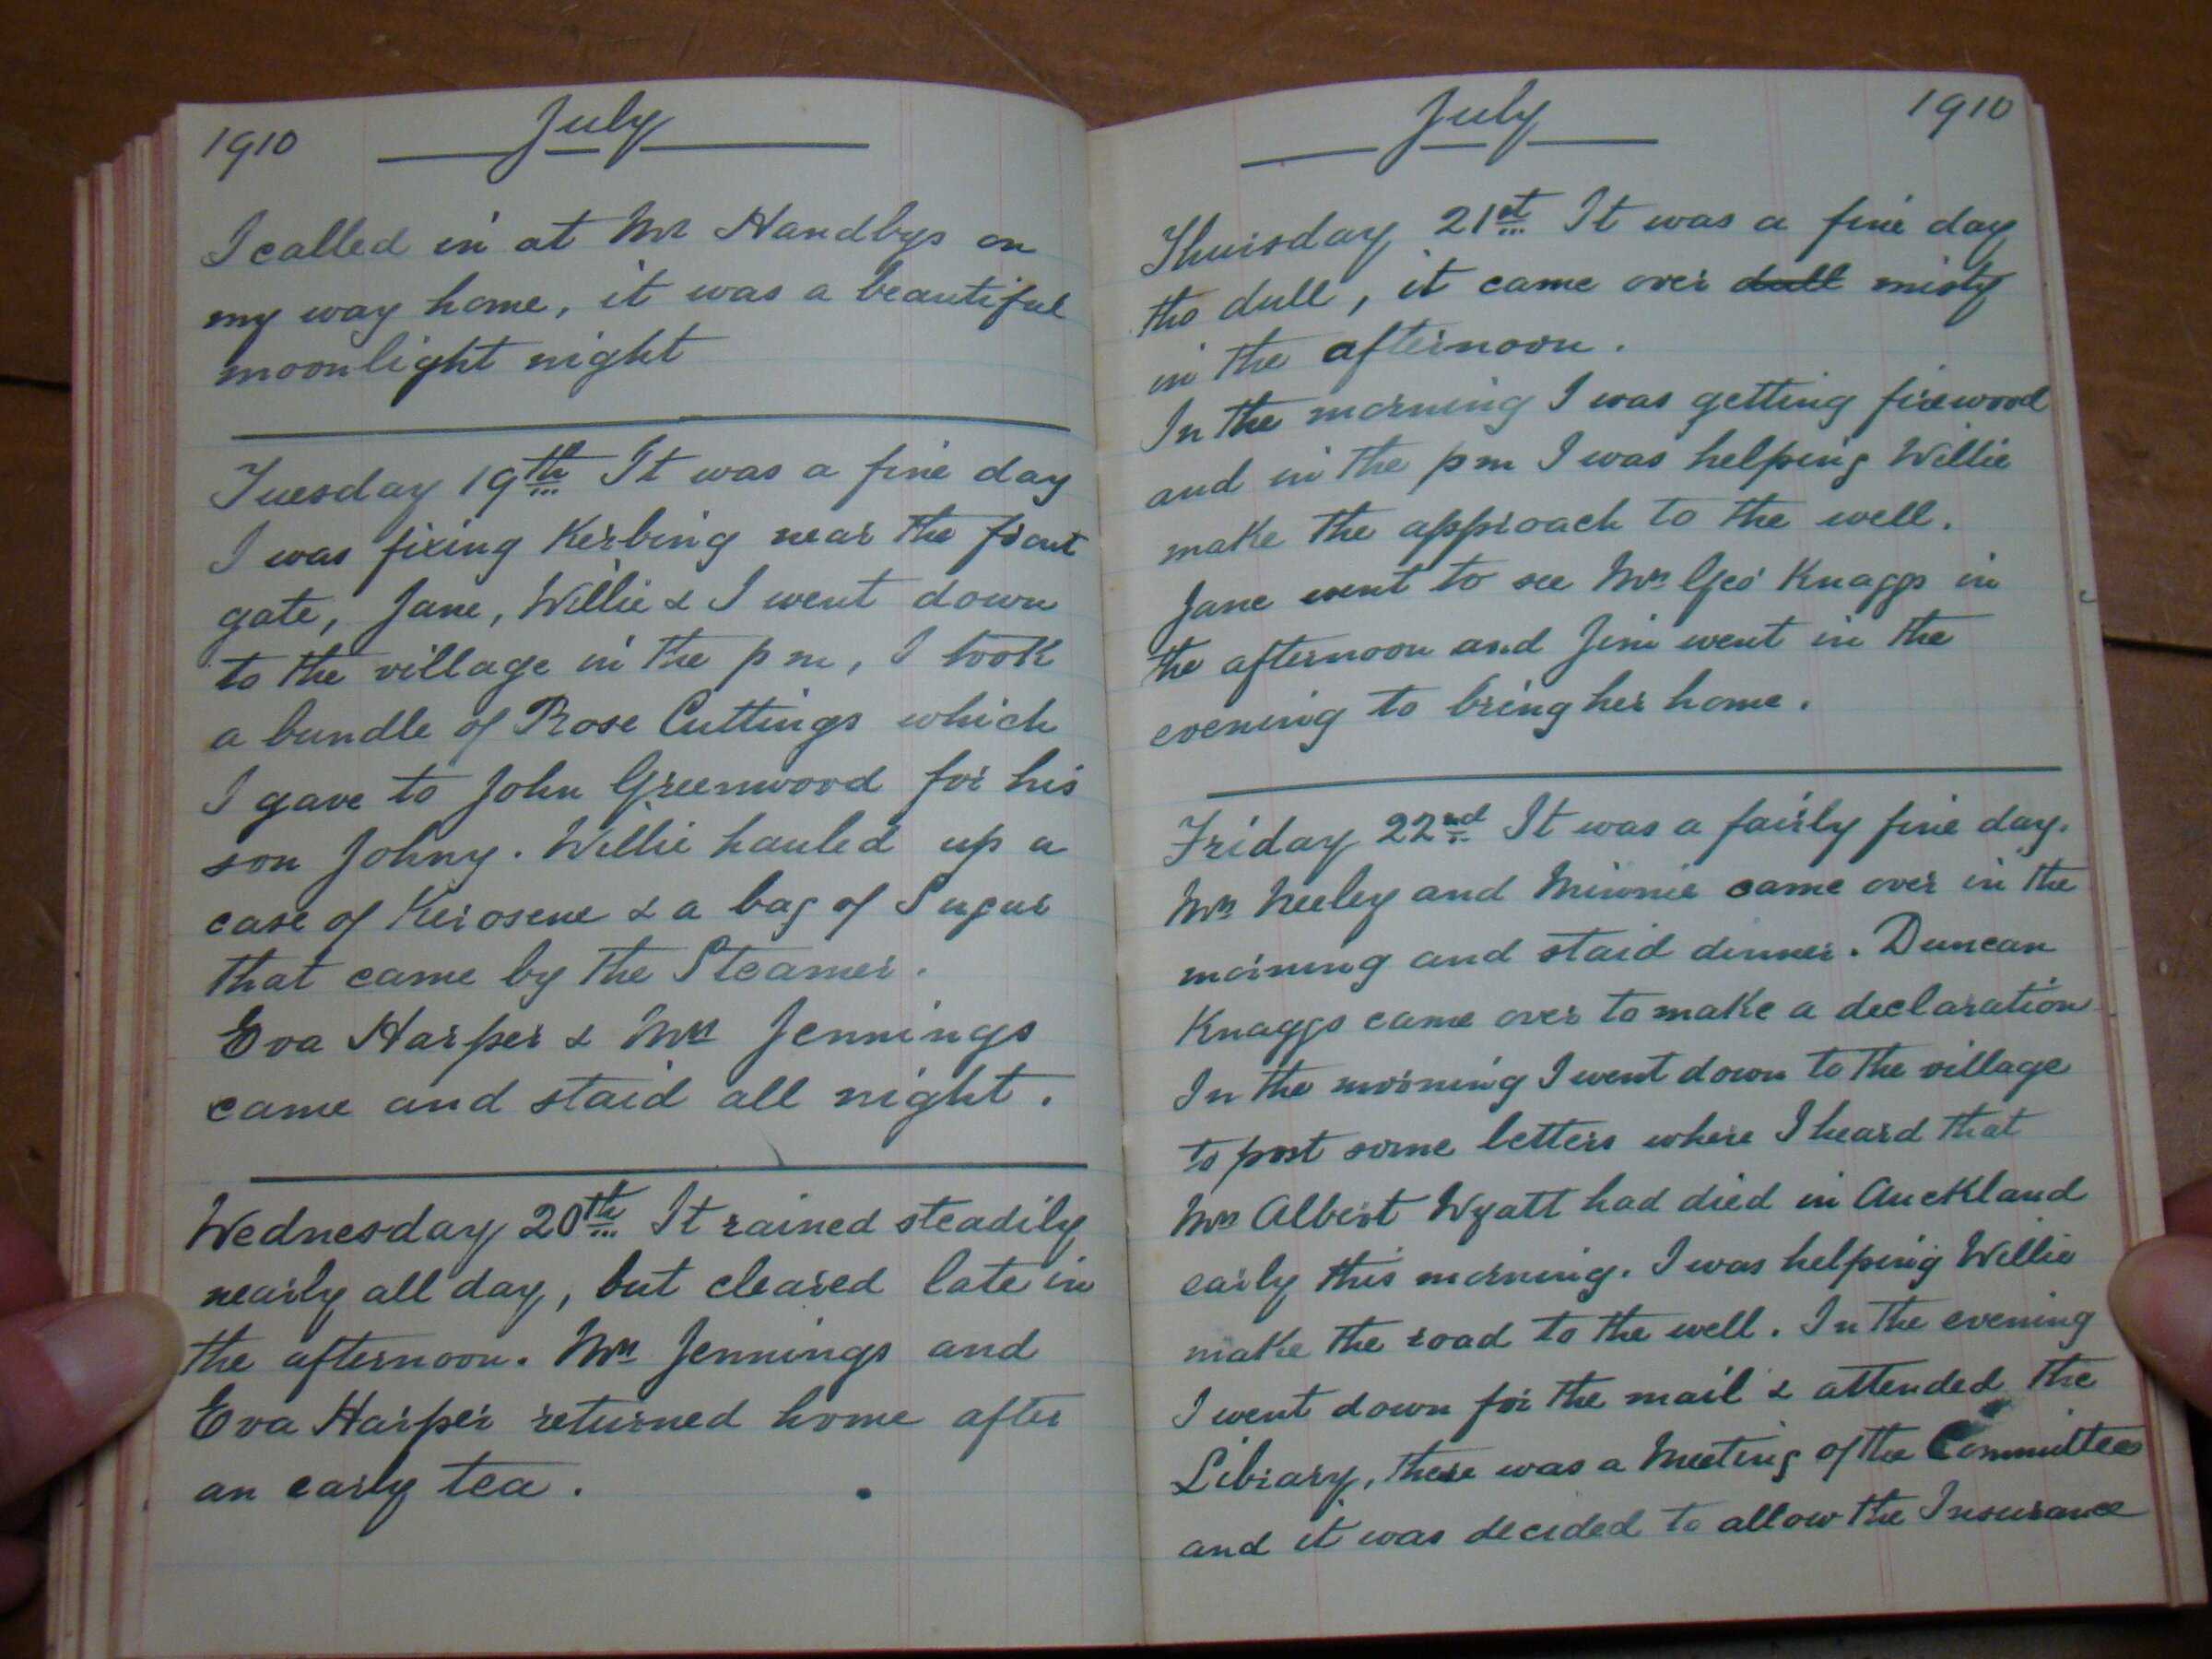 1910 July
I called in at Mr Handbys on
my way home, it was a beautiful
moonlight night
Tuesday 19th It was a fine day
I was fixing Kerbing near the front
gate, Jane, Willie & I went down
to the village in the p m, I took
a bundle of Rose Cuttings which
I gave to John Greenwood for his
son Johny. Willie hauled up a
case of Kerosene & a bag of Sugar
that came by the Steamer.
Eva Harper & Mrs Jennings
came and staid all night.
Wednesday 20th It rained steadily
nearly all day, but cleared late in
the afternoon. Mrs Jennings and
Eva Harper returned home after
an early tea.
July 1910
Thursday 21st It was a fine day
tho dull, it came over dull misty
in the afternoon.
In the morning I was getting firewood
and in the p m I was helping Willie
make the approach to the well.
Jane went to see Mrs Geo Knaggs in
the afternoon and Jim went in the
evening to bring her home.
Friday 22nd It was a fairly fine day.
Mrs Neeley and Minnie came over in the
morning and staid dinner. Duncan
Knaggs came over to make a declaration
In the morning I went down to the village
to post some letters where I heard that
Mrs Albert Wyatt had died in Auckland
early this morning. I was helping Willie
make the road to the well. In the evening
I went down for the mail & attended the
Library, there was a Meeting of the Committee
and it was decided to allow the Insurance